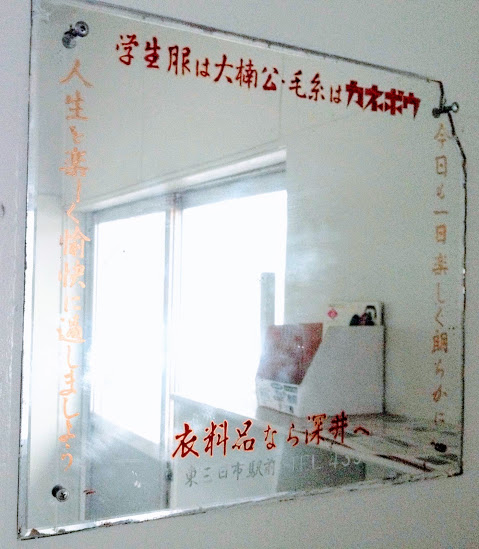 学生服は大楠公・毛糸はカネボウ
今日も一日楽しく朗らかに
人生を楽しく愉快に過しましょう
衣料品なら深井へ
東三日市駅前 TEL 43